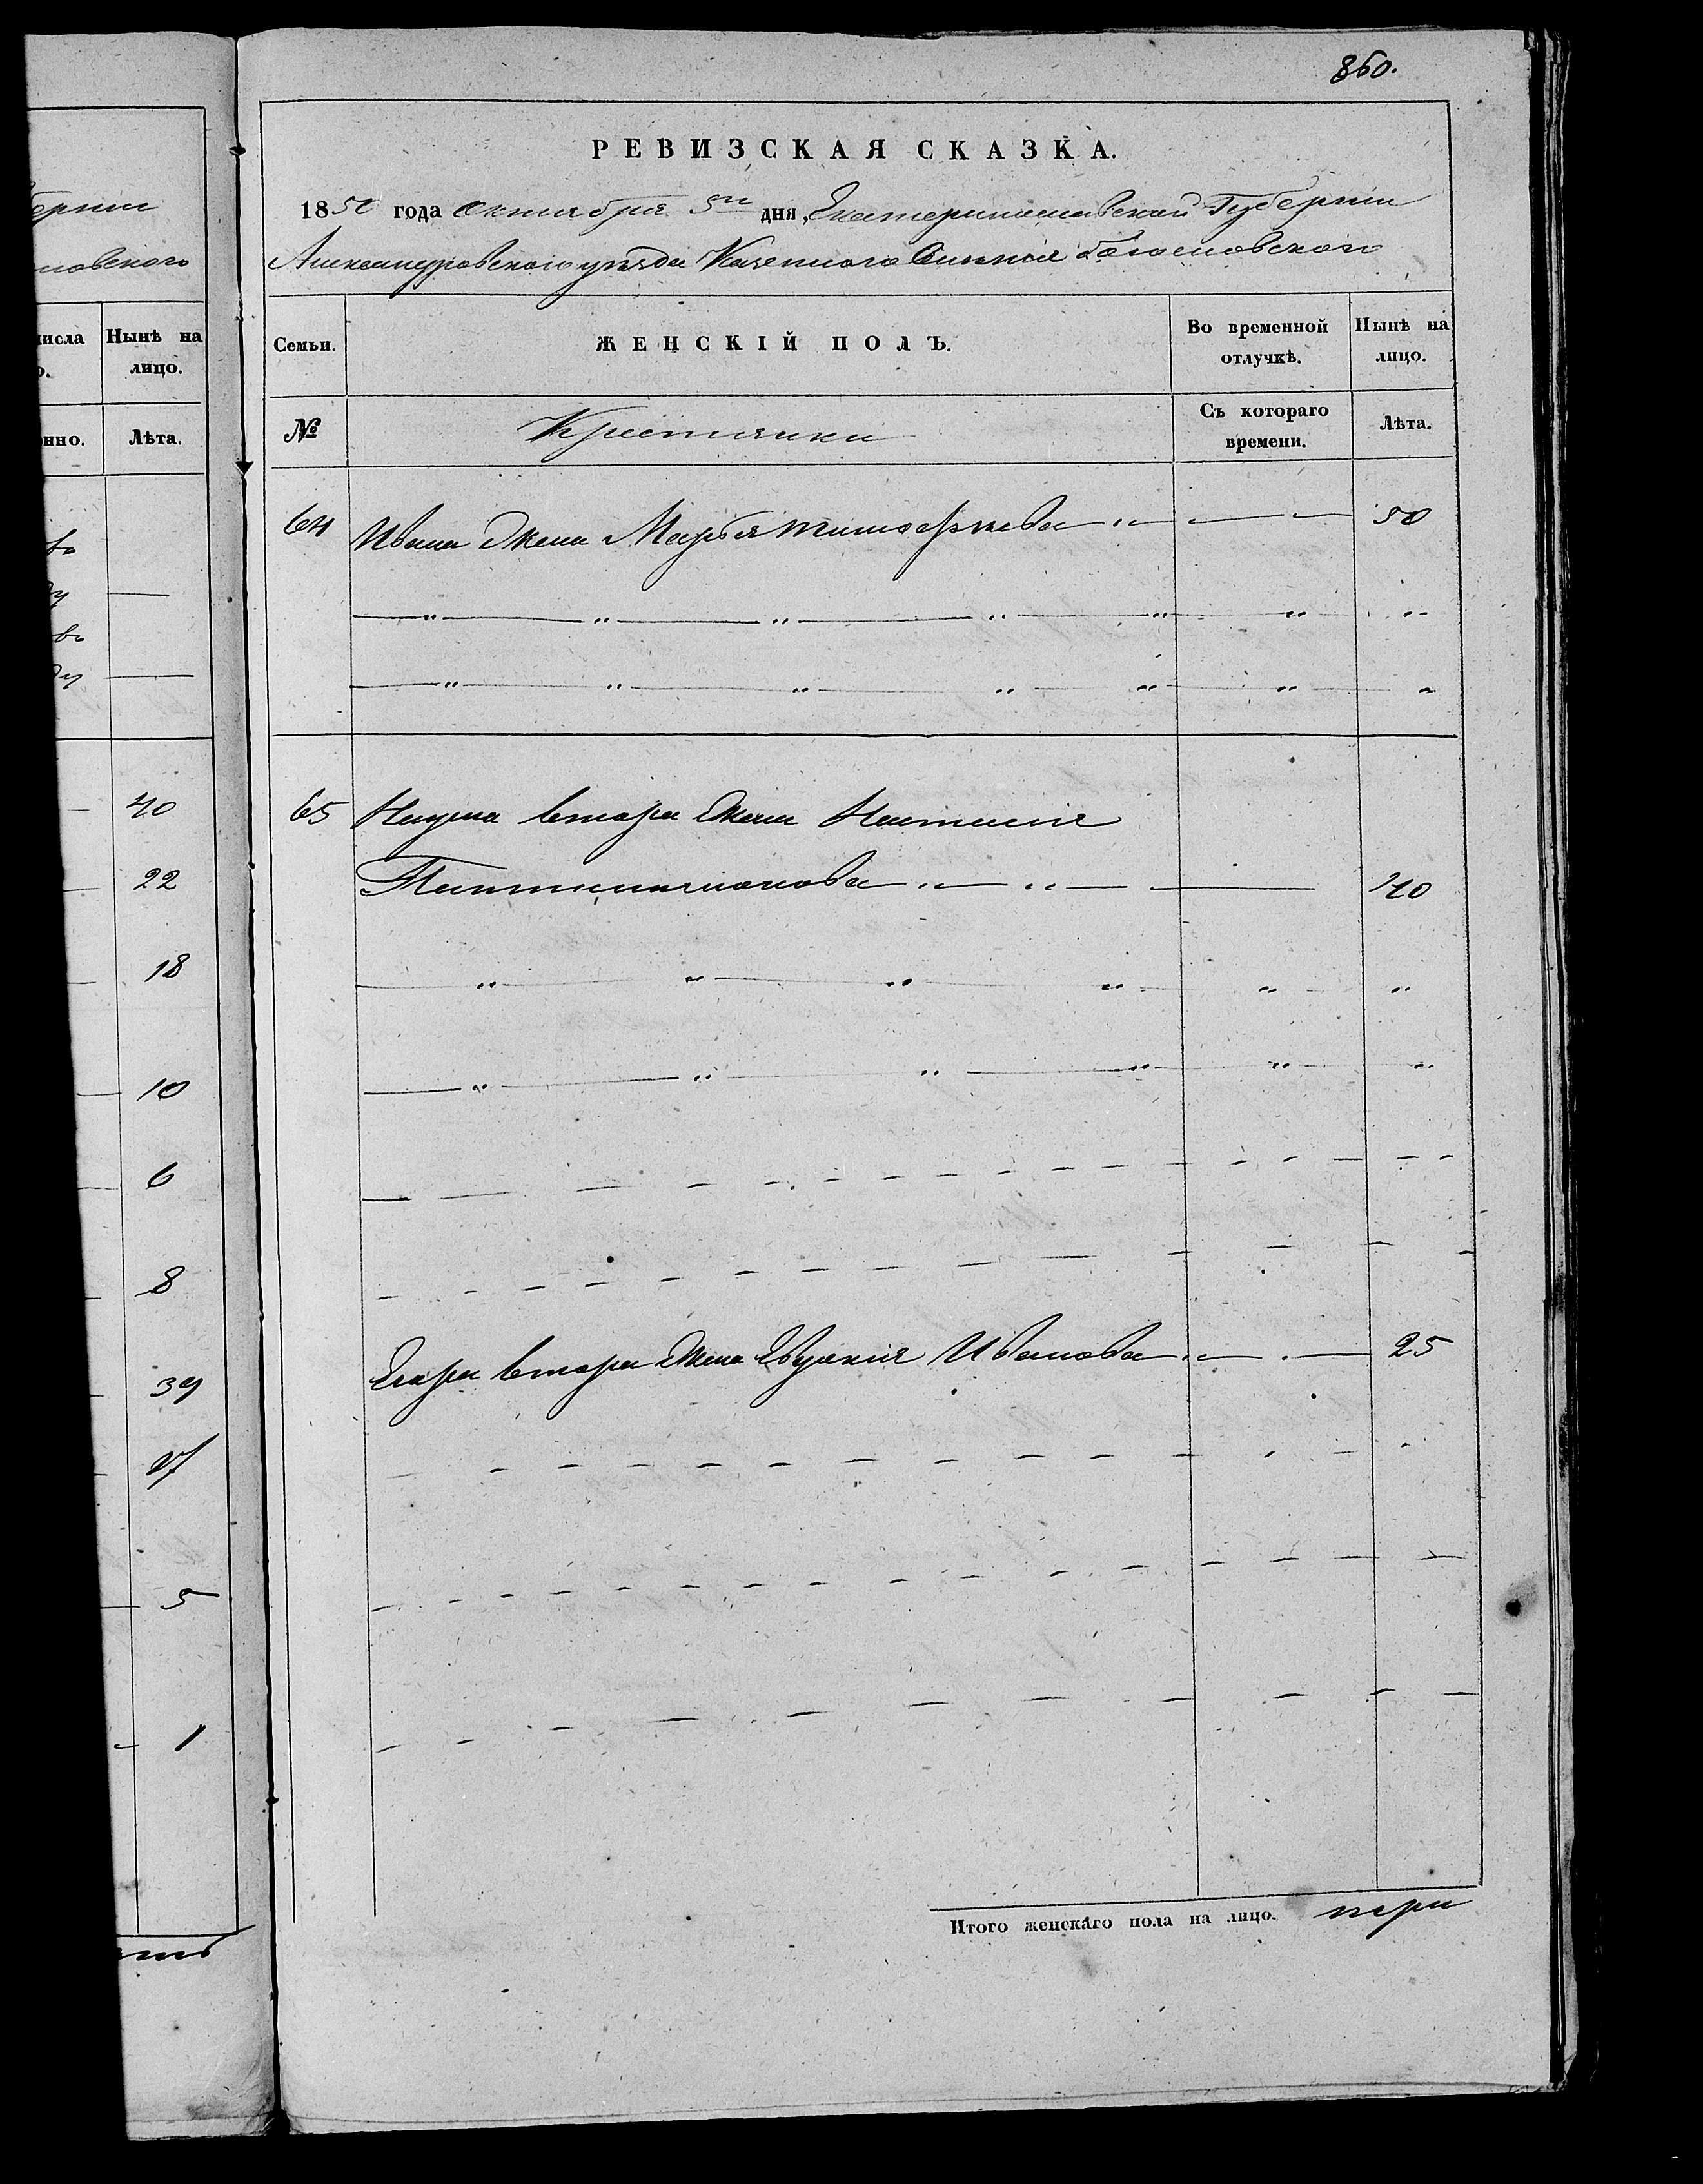 860.
РЕВИЗСКАЯ СКАЗКА.
1850 года октября 5го дня Екатеринославской Губернии
Александровского уезда Казенного Селения Богословского
Семьи. ЖЕНСКІЙ ПОЛЪ. Во временной отлучкѣ. Нынѣ на лицо.
№ Крестьянки Съ котораго времени. Лѣта.
64 Ивана жена Марья Тимофеева 50
65 Наума втора жена Настасия
40
Егора втора жена Евдокия Иванова 25
Итого женскаго пола на лицо. три
ерніи
ловского
числа Нынѣ на лицо.
нно. Лѣта.
40
22
18
10
6
8
39
17
5
1